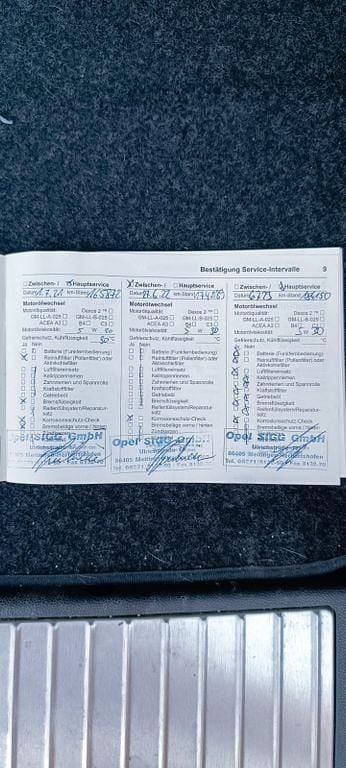 Bestätigung Service-Intervalle 9
Zwischen-/ Hauptservice
Datum 1.7.21 km-Stand 165872
Motorölwechsel
Motorölqualität: Dexos 2 ™
GM-LL-A-025 GM-LL-B-025
ACEA A3 B4 C3
Motorviskosität 5 W 30
Gefrierschutz, Kühlflüssigkeit 30 °C
Ja Nein
Batterie (Funkfernbedienung)
Reinluftfilter (Pollenfilter) oder
Aktivkohlefilter
Luftfiltereinsatz
Keilrippenriemen
Zahnriemen und Spannrolle
Kraftstofffilter
Getriebeöl
Bremsflüssigkeit
Reifenfüllsystem/Reparatur-
satz
Korrosionsschutz-Check
Bremsbeläge vorne / hinten
Zündkerzen
Opel SIGG GmbH
Zwischen-/ Hauptservice
Datum km-Stand
Motorölwechsel
Motorölqualität: Dexos 2 ™
GM-LL-A-025 GM-LL-B-025
ACEA A3 B4 C3
Motorviskosität 5 W 30
Gefrierschutz, Kühlflüssigkeit °C
Ja Nein
Batterie (Funkfernbedienung)
Reinluftfilter (Pollenfilter) oder
Aktivkohlefilter
Luftfiltereinsatz
Keilrippenriemen
Zahnriemen und Spannrolle
Kraftstofffilter
Getriebeöl
Bremsflüssigkeit
Reifenfüllsystem/Reparatur-
satz
Korrosionsschutz-Check
Bremsbeläge vorne / hinten
Zündkerzen
Opel SIGG
86405
Zwischen-/ Hauptservice
Datum km-Stand
Motorölwechsel
Motorölqualität: Dexos 2 ™
GM-LL-A-025 GM-LL-B-025
ACEA A3 B4 C3
Motorviskosität 5 W 30
Gefrierschutz, Kühlflüssigkeit °C
Ja Nein
Batterie (Funkfernbedienung)
Reinluftfilter (Pollenfilter) oder
Aktivkohlefilter
Luftfiltereinsatz
Keilrippenriemen
Zahnriemen und Spannrolle
Kraftstofffilter
Getriebeöl
Bremsflüssigkeit
Reifenfüllsystem/Reparatur-
satz
Korrosionsschutz-Check
Bremsbeläge vorne / hinten
Zündkerzen
Opel SIGG GmbH
86405